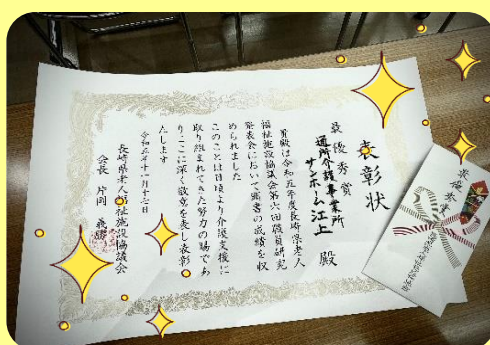 表彰状
最優秀賞
通所介護事業所
サンホーム江上 殿
貴殿は令和五年度長崎県老人
福祉施設協議会第六回職員研究
発表会において頭書の成績を収
められました
このことは日頃より介護支援に
取り組まれてきた努力の賜であ
りここに深く敬意を表し表彰い
たします
令和五年十一月十二日
長崎県老人福祉施設協議会
会長 片岡
最優秀賞